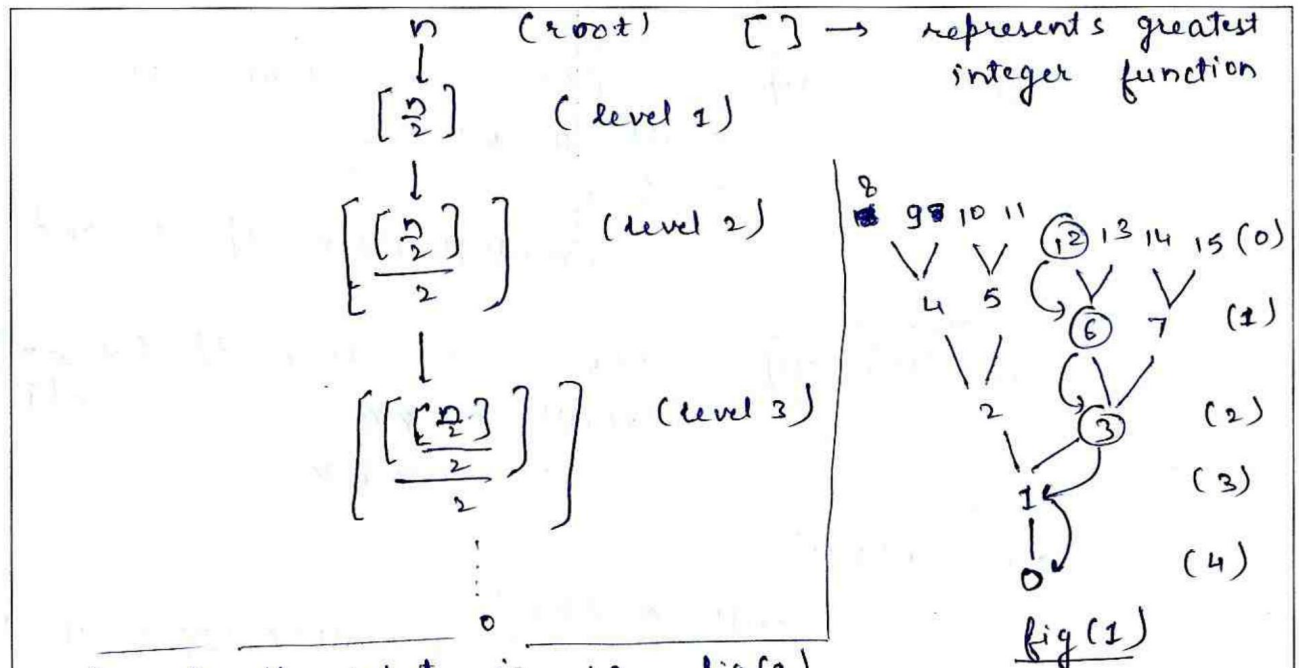 n (root) [ ] → represents greatest
integer function
↓
[n/2] (level 1)
↓
[[n/2]/2] (level 2)
↓
[[[n/2]/2]/2] (level 3)
0
8 9 10 11 12 13 14 15 (0)
4 5 6 7 (1)
2 3 (2)
1 (3)
0 (4)
fig (1)
fig(2)